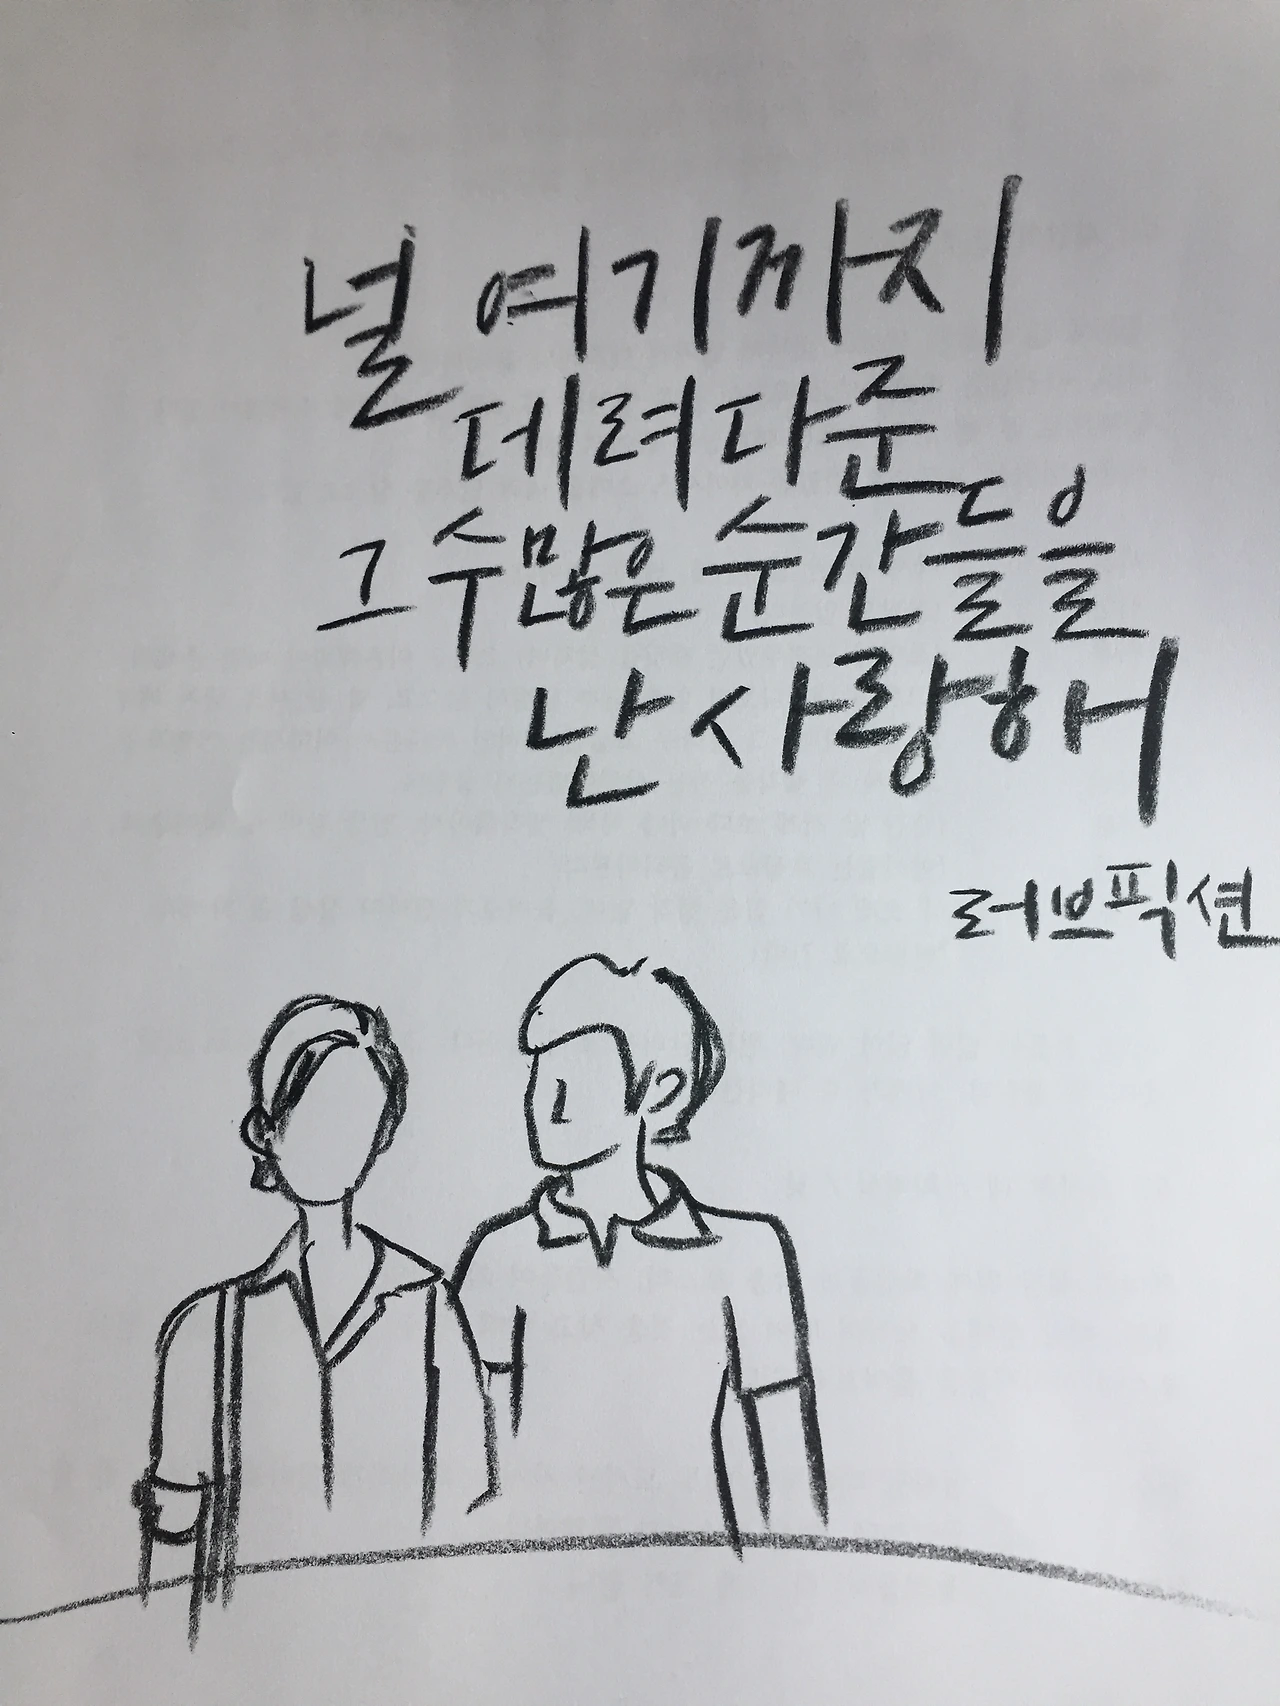 널 여기까지
데려다준
그 수많은 순간들을
난 사랑해
러브픽션